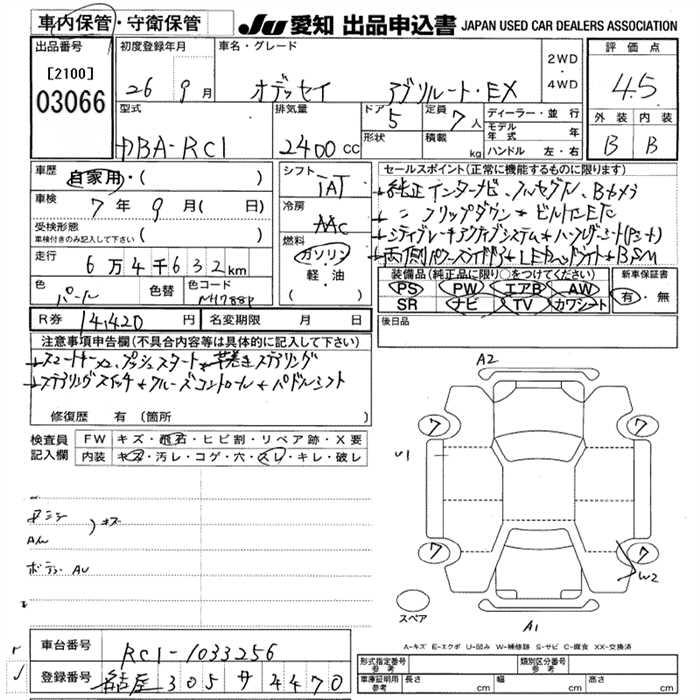 車内保管・守衛保管
JU 愛知 出品申込書 JAPAN USED CAR DEALERS ASSOCIATION
出品番号
[2100]
03066
初度登録年月
26 年 9 月
車名・グレード
オデッセイ アブソルート・EX
2WD
・
4WD
評価点
4.5
外装 内装
B B
型式
DBA-RC1
排気量
2400 cc
ドア 5
形状
定員 7 人
積載 kg
ディーラー・並行
モデル年式 年
ハンドル 左・右
車歴
自家用・( )
車検 7 年 9 月( 日)
受検形態
車検付きのみ記入して下さい ( )
走行
6 万 4 千 6 3 2 km
色
パール
色替
色コード
NH788P
シフト
IAT
冷房
AAC
燃料
ガソリン
軽・油
( )
セールスポイント(正常に機能するものに限ります)
+純正インターナビ、フルセグTV、Bカメラ
+ 〃 フリップダウン+ビルトインETC
+シティブレーキアクティブシステム+ハーフレザーシート(Pシート)
+両側パワースライドドア+LEDヘッドライト+BSM
装備品(純正品に限り○をつけてください)
PS PW エアB AW
SR ナビ TV カワシート
新車保証書
有・無
R券 14,420 円
名変期限 月 日
後日品
注意事項申告欄(不具合内容等は具体的に記入して下さい)
+スマートキーx2、プッシュスタート+革巻きステアリング
+ステアリングスイッチ+クルーズコントロール+パドルシフト
修復歴 有(箇所 )
検査員記入欄
FW キズ・飛石・ヒビ割・リペア跡・X要
内装 キズ・汚レ・コゲ・穴・スレ・キレ・破レ
キズ
A/W
ボディ AU
A2
U1
7
7
7
7
W2
スペア
A1
A-キズ E-エクボ U-凹み W-補修跡 S-サビ C-腐食 XX-交換済
車台番号
RC1-1033256
登録番号
名古屋 305 サ 4470
形式指定番号 参考
類別区分番号 参考
車庫証明用 参考
長さ cm
幅 cm
高さ cm